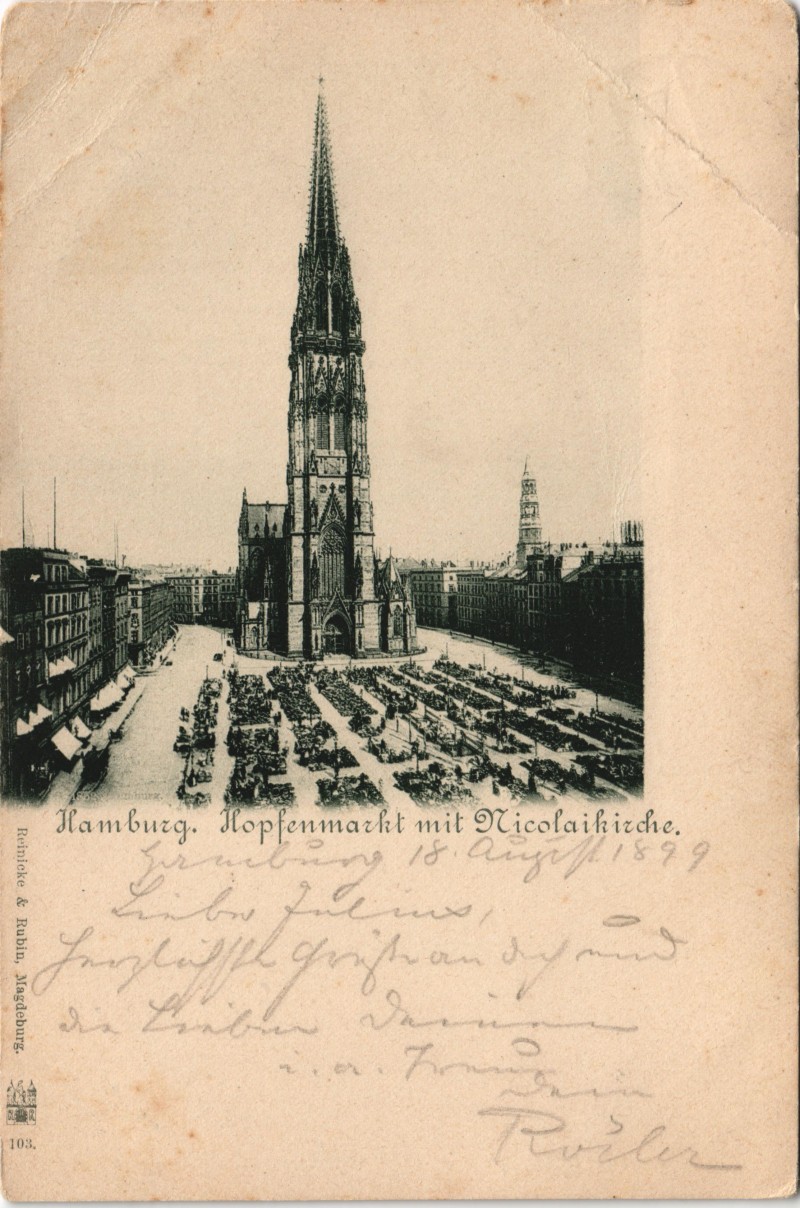 Hamburg. Hopfenmarkt mit Nicolaikirche.
Hamburg 18. August 1899
Lieber Julius,
Herzlichste Grüße an dich und
die Lieben Deinen
i. a.
Dein
Reinicke & Rubin, Magdeburg.
103.